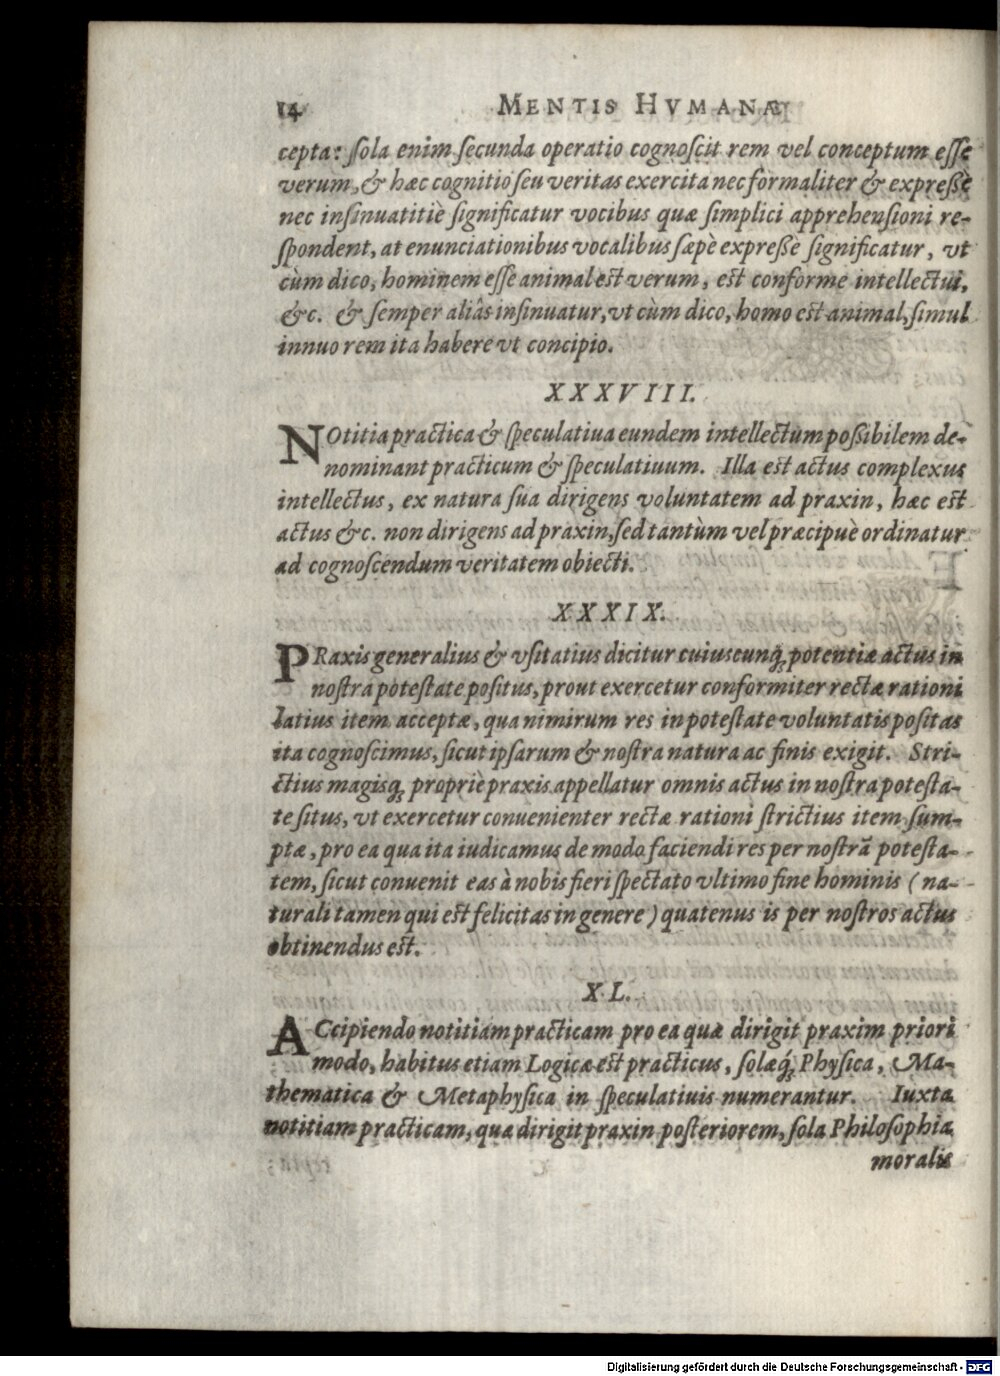 14 MENTIS HVMANÆ
cepta: ſola enim ſecunda operatio cognoſcit rem vel conceptum eſſe
verum, & hæc cognitio ſeu veritas exercita nec formaliter & expreßè
nec inſinuatitiè ſignificatur vocibus quæ ſimplici apprehenſioni re-
ſpondent, at enunciationibus vocalibus ſæpè expreßè ſignificatur, vt
cùm dico, hominem eſſe animal est verum, est conforme intellectui,
&c. & ſemper aliâs inſinuatur, vt cùm dico, homo est animal, ſimul
innuo rem ita habere vt concipio.
XXXVIII.
NOtitia practica & ſpeculatiua eundem intellectum poßibilem de-
nominant practicum & ſpeculatiuum. Illa est actus complexus
intellectus, ex natura ſua dirigens voluntatem ad praxin, hæc est
actus &c. non dirigens ad praxin, ſed tantùm vel præcipuè ordinatur
ad cognoſcendum veritatem obiecti.
XXXIX.
PRaxis generalius & vſitatius dicitur cuiuscunq; potentiæ actus in
noſtra poteſtate poſitus, prout exercetur conformiter rectæ rationi
latius item acceptæ, qua nimirum res in poteſtate voluntatis poſitas
ita cognoſcimus, ſicut ipſarum & noſtra natura ac finis exigit. Stri-
ctius magisq; propriè praxis appellatur omnis actus in noſtra poteſta-
te ſitus, vt exercetur conuenienter rectæ rationi ſtrictius item ſum-
ptæ, pro ea qua ita iudicamus de modo faciendi res per noſtrã poteſta-
tem, ſicut conuenit eas à nobis fieri ſpectato vltimo fine hominis (na-
turali tamen qui est felicitas in genere) quatenus is per noſtros actus
obtinendus est.
XL.
ACcipiendo notitiam practicam pro ea quæ dirigit praxim priori
modo, habitus etiam Logicæ est practicus, ſolæq; Phyſica, Ma-
thematica & Metaphyſica in ſpeculatiuis numerantur. Iuxta
notitiam practicam, quæ dirigit praxin poſteriorem, ſola Philoſophia
moralis
Digitalisierung gefördert durch die Deutsche Forschungsgemeinschaft - DFG